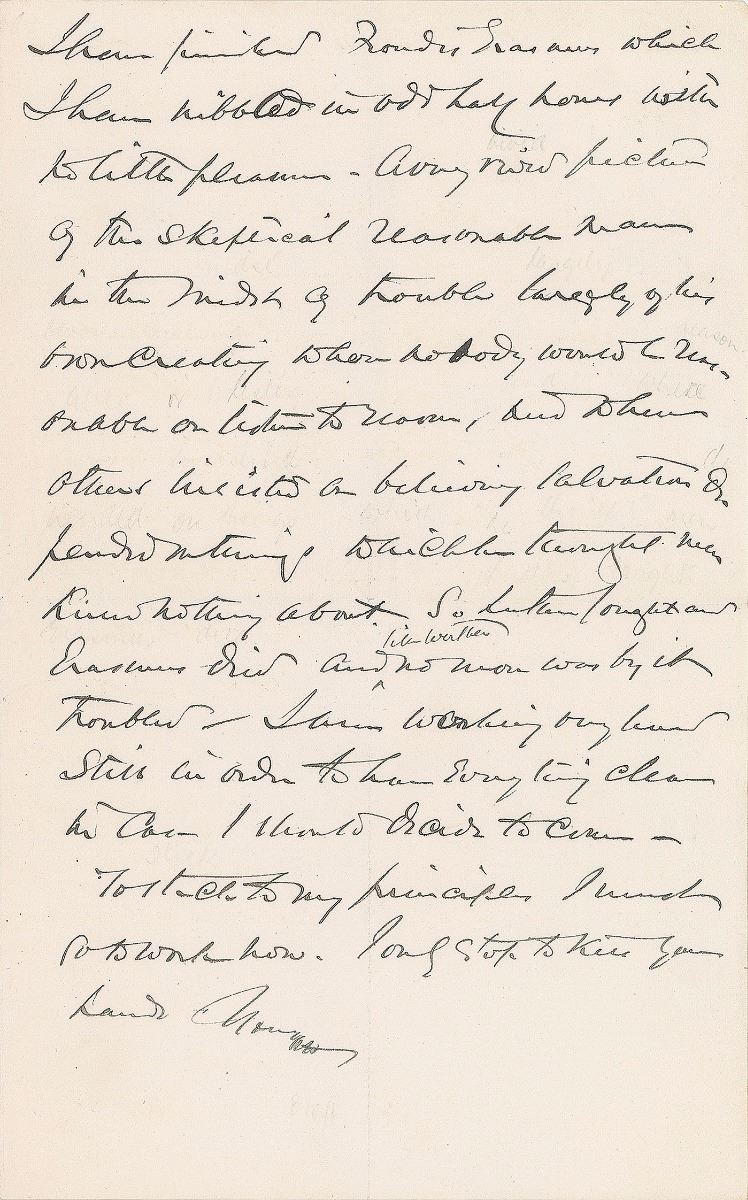 I have finished Froude's Erasmus which
I have nibbled in odd half hours with
no little pleasure - A very vivid picture
of the skeptical reasonable man
in the midst of trouble largely of his
own creating when nobody would be rea-
sonable or listen to reason, and when
others insisted on believing salvation de-
pended on things which he thought men
knew nothing about. So Luther fought and
like Werther
Erasmus died and no man was by it
troubled - I am working very hard
still in order to have everything clear
in case I should decide to come -
To stick to my principles I must
go to work now. I only stop to kiss your
hands Yours